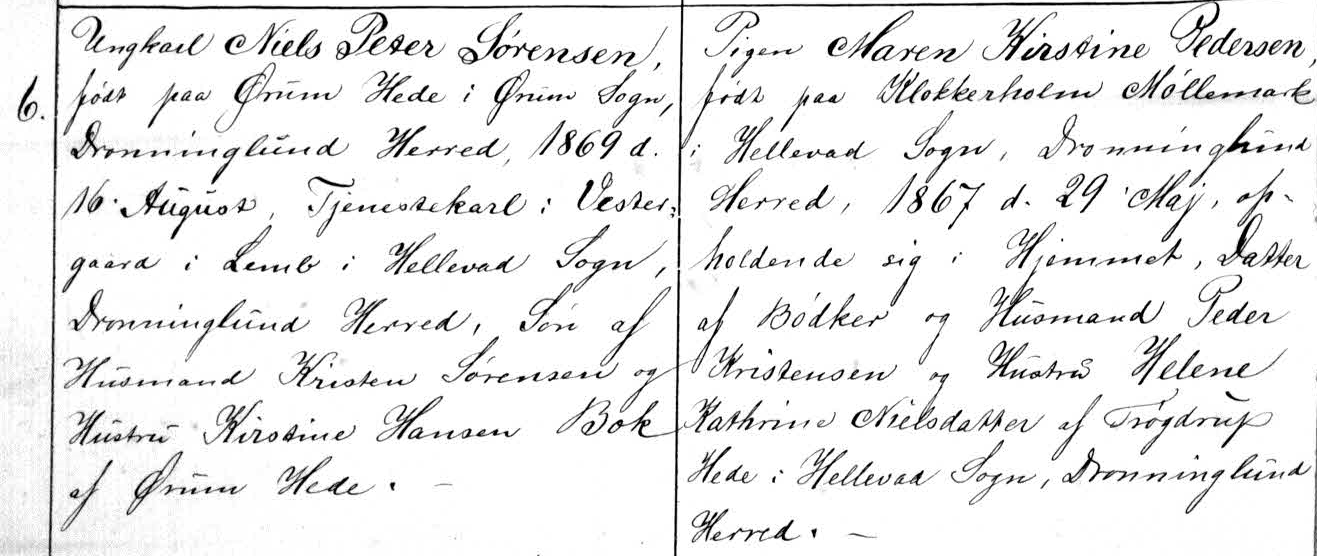 6.
Ungkarl Niels Peter Sørensen,
født paa Ørum Hede i Ørum Sogn,
Dronninglund Herred, 1869 d.
16. August, Tjenestekarl i Vester-
gaard i Lemb i Hellevad Sogn,
Dronninglund Herred, Søn af
Husmand Kristen Sørensen og
Hustru Kirstine Hansen Bok
af Ørum Hede. —
Pigen Maren Kirstine Pedersen,
født paa Klokkerholm Møllemark
i Hellevad Sogn, Dronninglund
Herred, 1867 d. 29 Maj, op-
holdende sig i Hjemmet, Datter
af Bødker og Husmand Peder
Kristensen og Hustru Helene
Kathrine Nielsdatter af Trøgdrup
Hede i Hellevad Sogn, Dronninglund
Herred. —